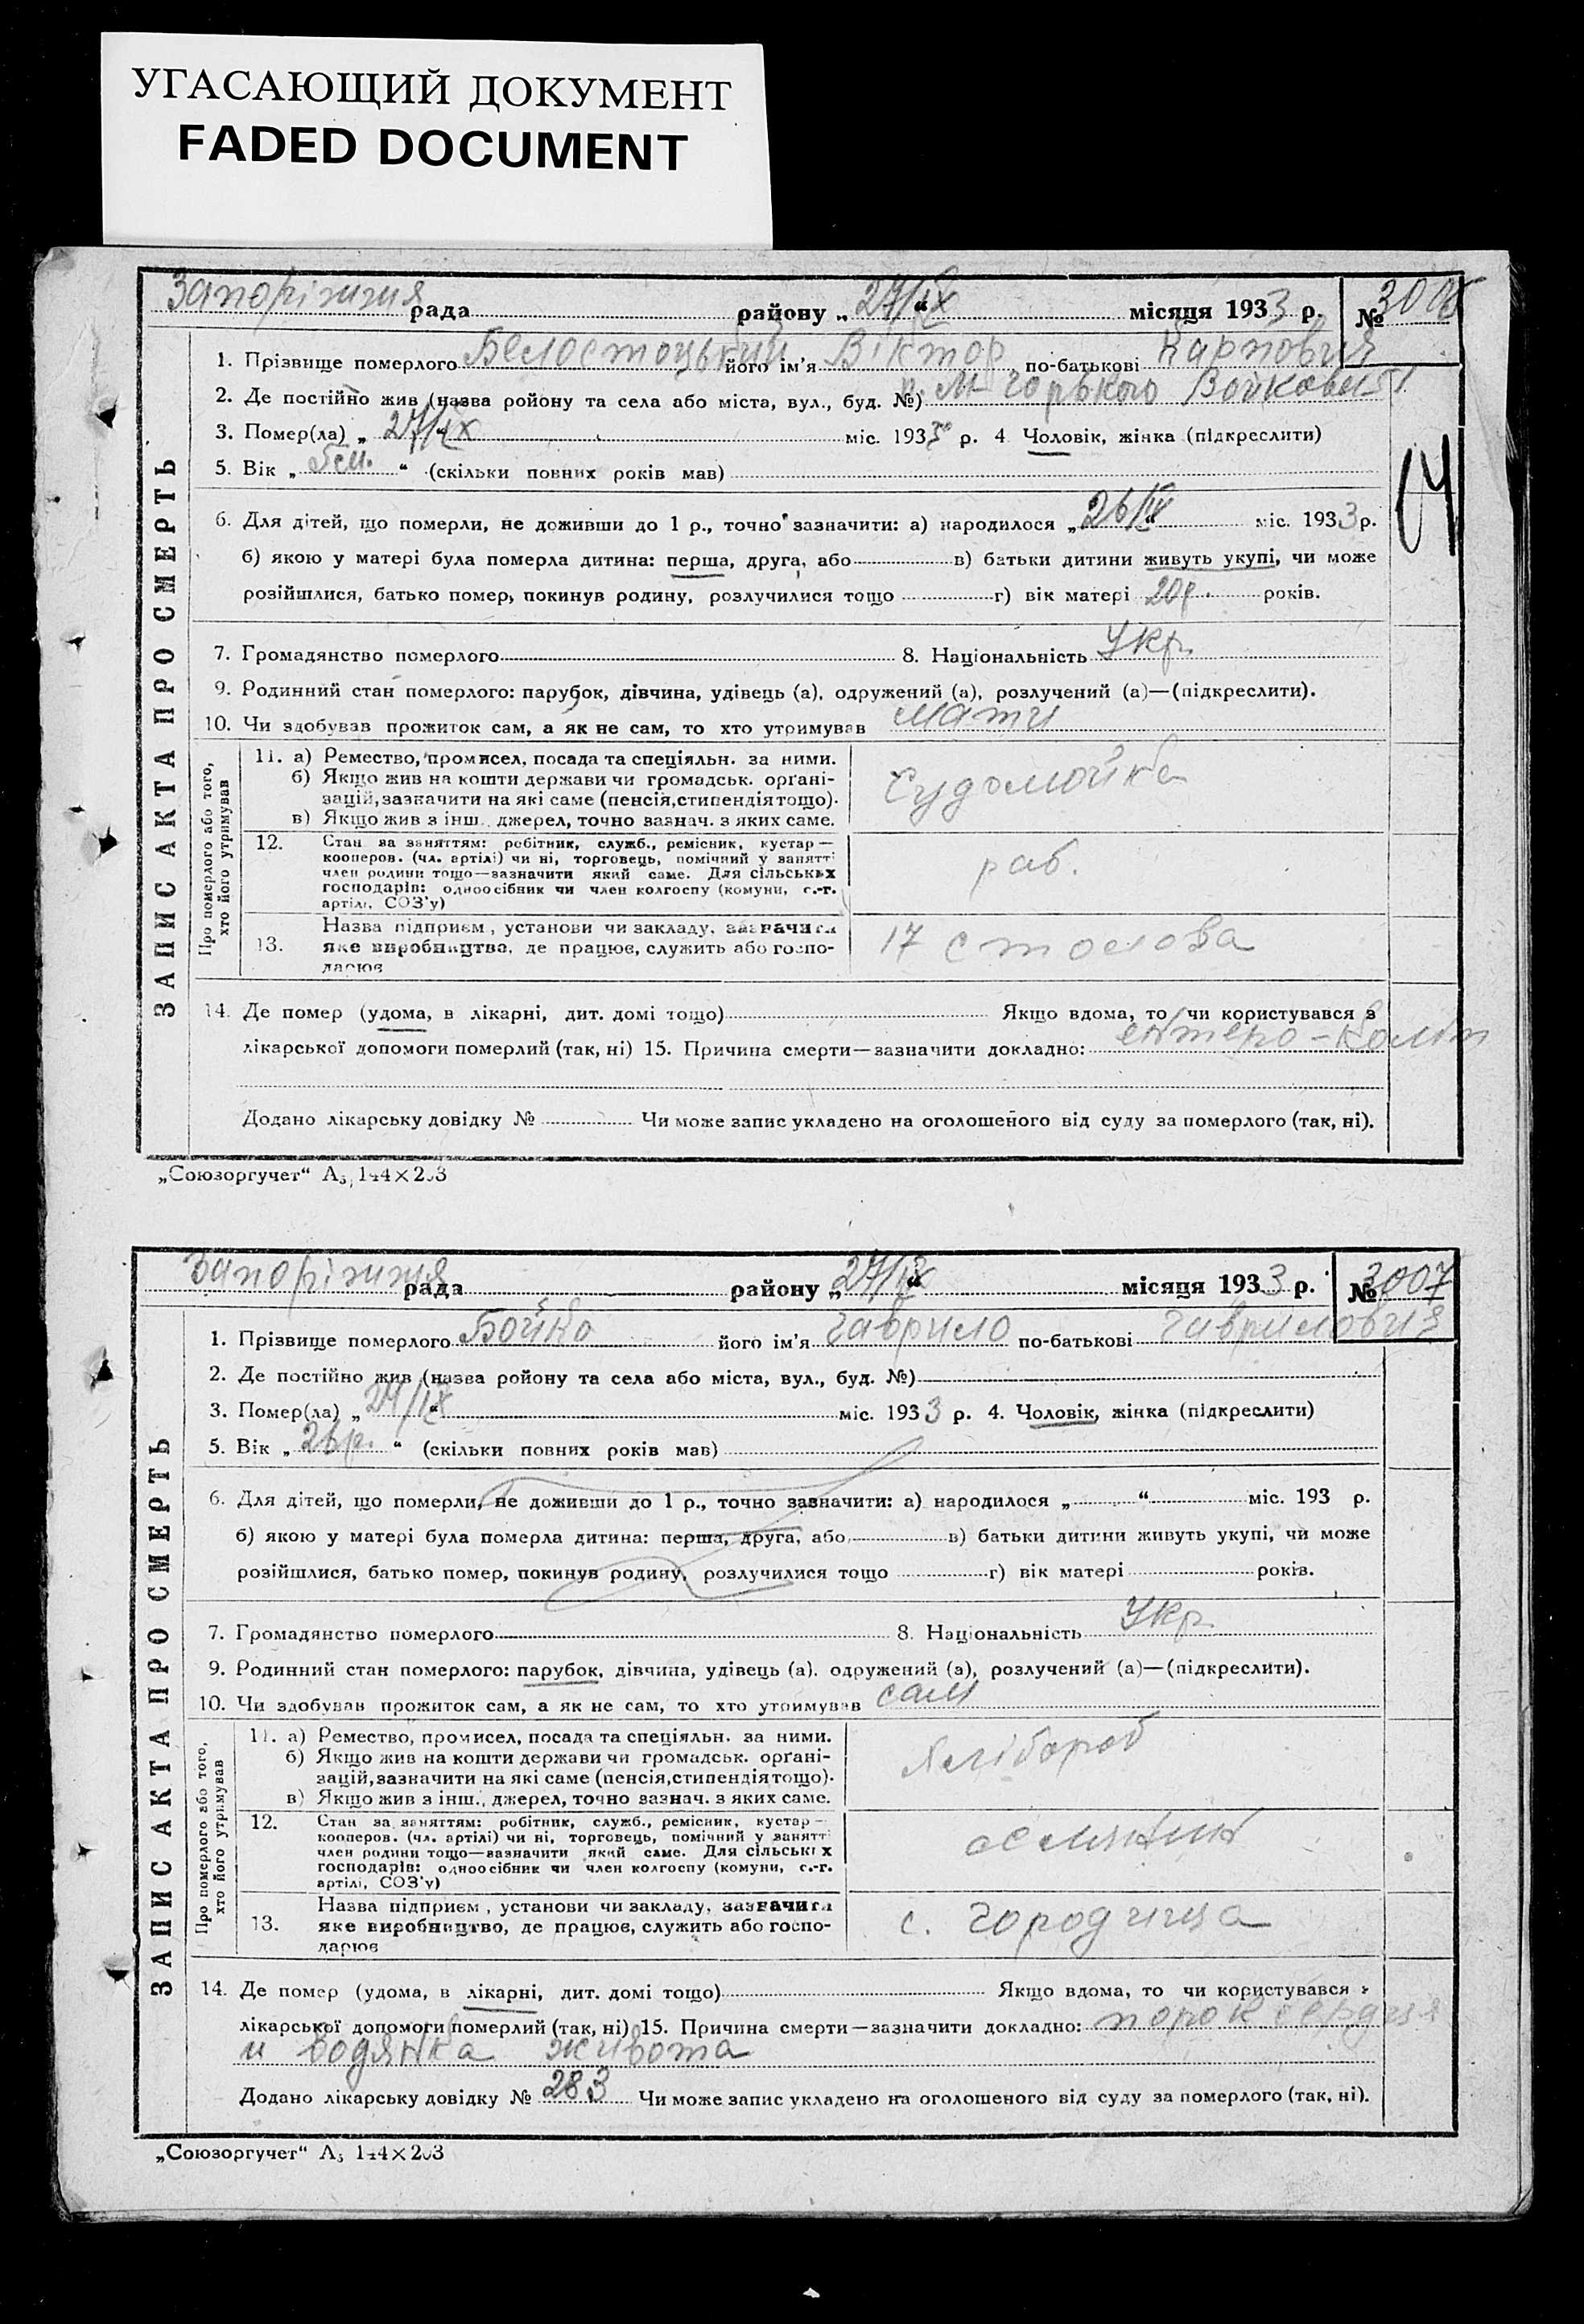 УГАСАЮЩИЙ ДОКУМЕНТ
FADED DOCUMENT
Запоріжжя рада району „ 27/IX “ місяця 1933 р. № 3006
1. Прізвище померлого Белостоцький його ім’я Віктор по-батькові Карпович
2. Де постійно жив (назва ройону та села або міста, вул., буд. №) М-Горького
3. Помер(ла) „ 27/IX міс. 1933 р. 4 Чоловік, жінка (підкреслити)
5. Вік „ “ (скільки повних років мав)
6. Для дітей, що померли, не доживши до 1 р., точно зазначити: а) народилося „ 26/ “ міс. 1933 р.
б) якою у матері була померла дитина: перша, друга, або в) батьки дитини живуть укупі, чи може
розійшлися, батько помер, покинув родину, розлучилися тощо г) вік матері 20р. років.
7. Громадянство померлого 8. Національність Укр.
9. Родинний стан померлого: парубок, дівчина, удівець (а), одружений (а), розлучений (а)—(підкреслити).
10. Чи здобував прожиток сам, а як не сам, то хто утримував мати
ЗАПИС АКТА ПРО СМЕРТЬ
Про померлого або того,
хто його утримував
11. а) Ремество, промисел, посада та спеціяльн. за ними.
б) Якщо жив на кошти держави чи громадськ. орґані-
зацій, зазначити на які саме (пенсія, стипендія тощо).
в) Якщо жив з інш. джерел, точно зазнач. з яких саме.
Судомойка
12. Стан за заняттям: робітник, служб., ремісник, кустар—
кооперов. (чл. артілі) чи ні, торговець, помічний у занятті
член родини тощо—зазначити який саме. Для сільських
господарів: одноосібник чи член колгоспу (комуни, с.-г.
артілі, СОЗ’у)
раб.
13. Назва підприєм., установи чи закладу, зазначити
яке виробництво, де працює, служить або госпо-
дарює
17 столова
14. Де помер (удома, в лікарні, дит. домі тощо) Якщо вдома, то чи користувався з
лікарської допомоги померлий (так, ні) 15. Причина смерти—зазначити докладно: ентеро-коліт
Додано лікарську довідку № Чи може запис укладено на оголошеного від суду за померлого (так, ні).
„Союзоргучет“ А₃ 144×203
Запоріжжя рада району „ 27/IX “ місяця 1933 р. № 3007
1. Прізвище померлого Бойко його ім’я Гаврило по-батькові Гаврилович
2. Де постійно жив (назва ройону та села або міста, вул., буд. №)
3. Помер(ла) „ /IX “ міс. 1933 р. 4. Чоловік, жінка (підкреслити)
5. Вік „ 26р. “ (скільки повних років мав)
6. Для дітей, що померли, не доживши до 1 р., точно зазначити: а) народилося „ “ міс. 193 р.
б) якою у матері була померла дитина: перша, друга, або в) батьки дитини живуть укупі, чи може
розійшлися, батько помер, покинув родину, розлучилися тощо г) вік матері років.
7. Громадянство померлого 8. Національність Укр.
9. Родинний стан померлого: парубок, дівчина, удівець (а), одружений (а), розлучений (а)—(підкреслити).
10. Чи здобував прожиток сам, а як не сам, то хто утримував сам
ЗАПИС АКТА ПРО СМЕРТЬ
Про померлого або того,
хто його утримував
11. а) Ремество, промисел, посада та спеціяльн. за ними.
б) Якщо жив на кошти держави чи громадськ. орґані-
зацій, зазначити на які саме (пенсія, стипендія тощо).
в) Якщо жив з інш. джерел, точно зазнач. з яких саме.
хлібороб
12. Стан за заняттям: робітник, служб., ремісник, кустар—
кооперов. (чл. артілі) чи ні, торговець, помічний у занятті
член родини тощо—зазначити який саме. Для сільських
господарів: одноосібник чи член колгоспу (комуни, с.-г.
артілі, СОЗ’у)
13. Назва підприєм., установи чи закладу, зазначити
яке виробництво, де працює, служить або госпо-
дарює
с. Городища
14. Де помер (удома, в лікарні, дит. домі тощо) Якщо вдома, то чи користувався з
лікарської допомоги померлий (так, ні) 15. Причина смерти—зазначити докладно: порок сердця
и водянка живота
Додано лікарську довідку № 283 Чи може запис укладено на оголошеного від суду за померлого (так, ні).
„Союзоргучет“ А₃ 144×203